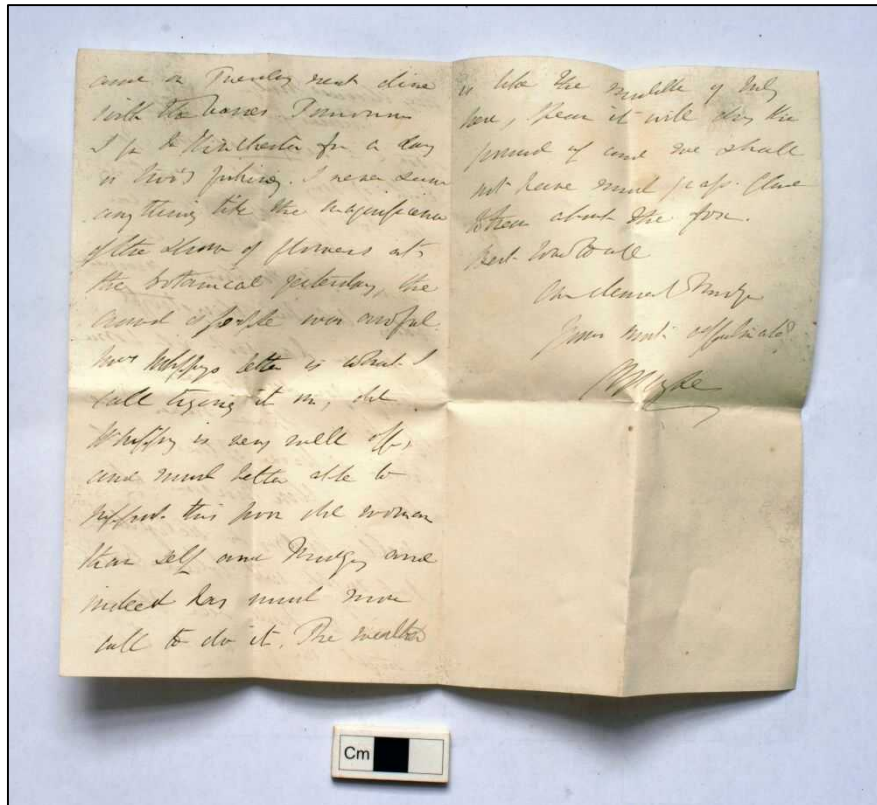 and on Tuesday next dine
with the Tomorrow
I go to Winchester for a day
or two's fishing. I never saw
anything like the magnificence
of the show of flowers at
the botanical yesterday, the
crowd of people was awful.
Mrs letter is what I
call trying it on, old
is very well off,
and much better able to
support this poor old woman
than self and Mudge, and
indeed has much more
call to do it. The weather
is like the middle of July
here, I fear it will dry the
ground up and we shall
not have much grass.
about the
best love to all
Mudge
yours most
Cm